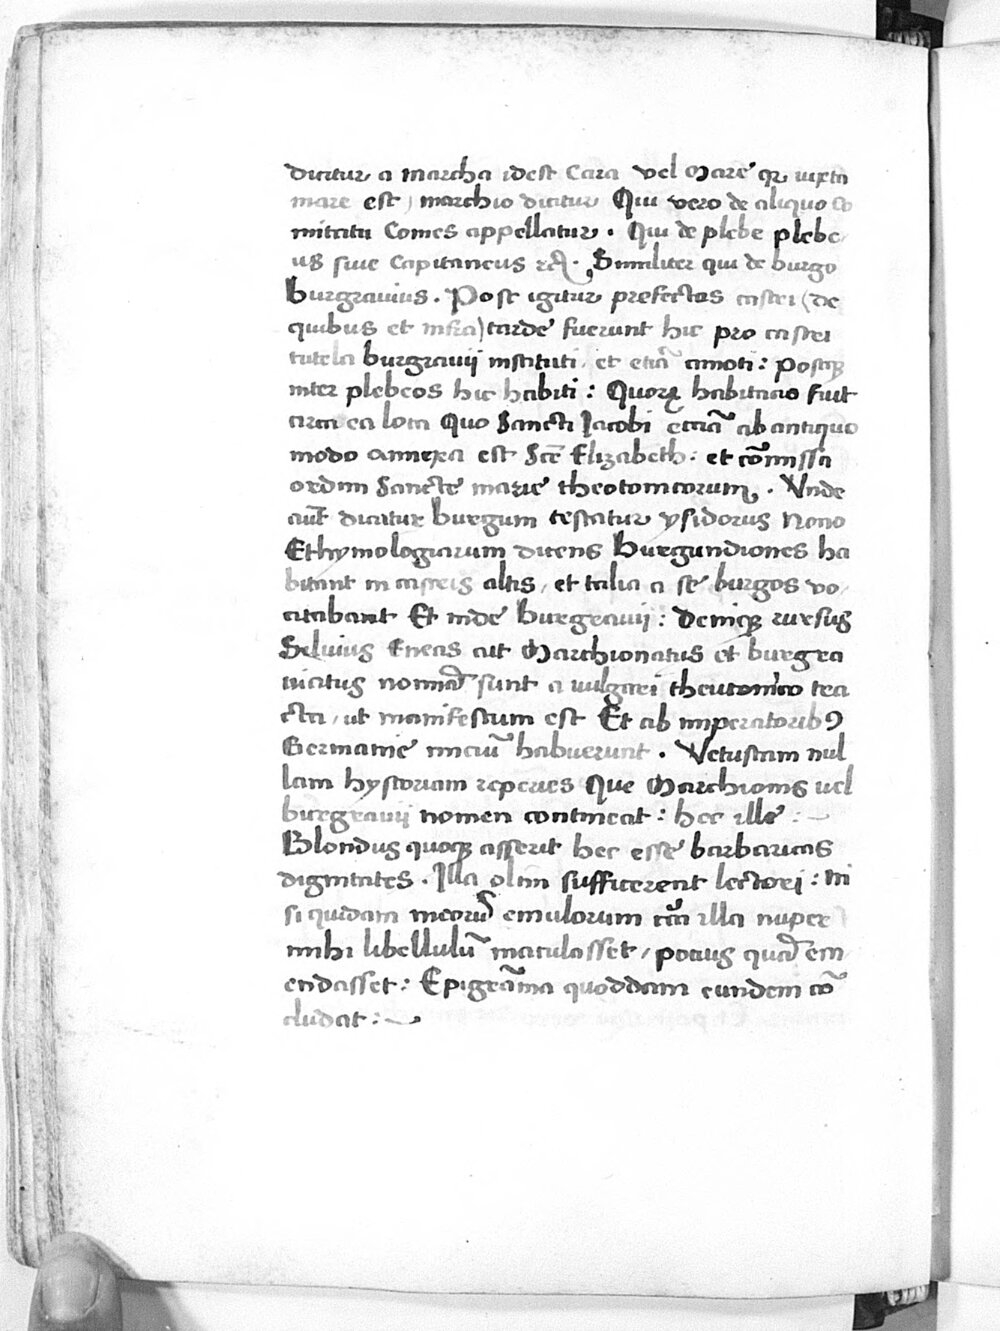 dicitur a marcha idest Cara vel Mare qꝛ iuxta
mare est, marchio dicitur Qui vero de aliquo co
mitatu Comes appellatur. Qui de plebe plebe
us siue Capitaneus ⁊cͣ. Similiter qui de burgo
burgrauius. Post igitur prefectos castri (de
quibus et infra) tarde fuerunt hic pro castri
tutela burgrauij instituti, et etiā amoti: postqꝫ
inter plebeos hic habiti: Quoꝝ habitacio fuit
circa ea loca Quo Sancti Jacobi etiā ab antiquo
modo annexa est Scē Elizabeth: et cōmissa
ordini Sancte marie theotonicorum. Vnde
aut̄ dicitur burgum testatur ysidorus Nono
Ethymologiarum dicens Burgundiones ha
bitant in castris altis, et talia a se burgos vo
citabant Et inde burgrauij: Deniqꝫ rursus
Siluius Eneas ait Marchionatus et burgra
uiatus nomīa sunt a vulgari theutonico tra
cta, ut manifestum est Et ab imperatoribꝰ
Germanie iniciū habuerunt. Vetustam nul
lam hystoriam reperies Que Marchionis uel
burgrauij nomen contineat: hec ille:
Blondus quoqꝫ asserit hec esse barbaricas
dignitates. Illa olim sufficerent lectori: ni
si quidam meorū emulorum cū illa nuper
mihi libellulū maculasset, pocius quā em
endasset: Epigrāma quoddam eundem cō
cludat: